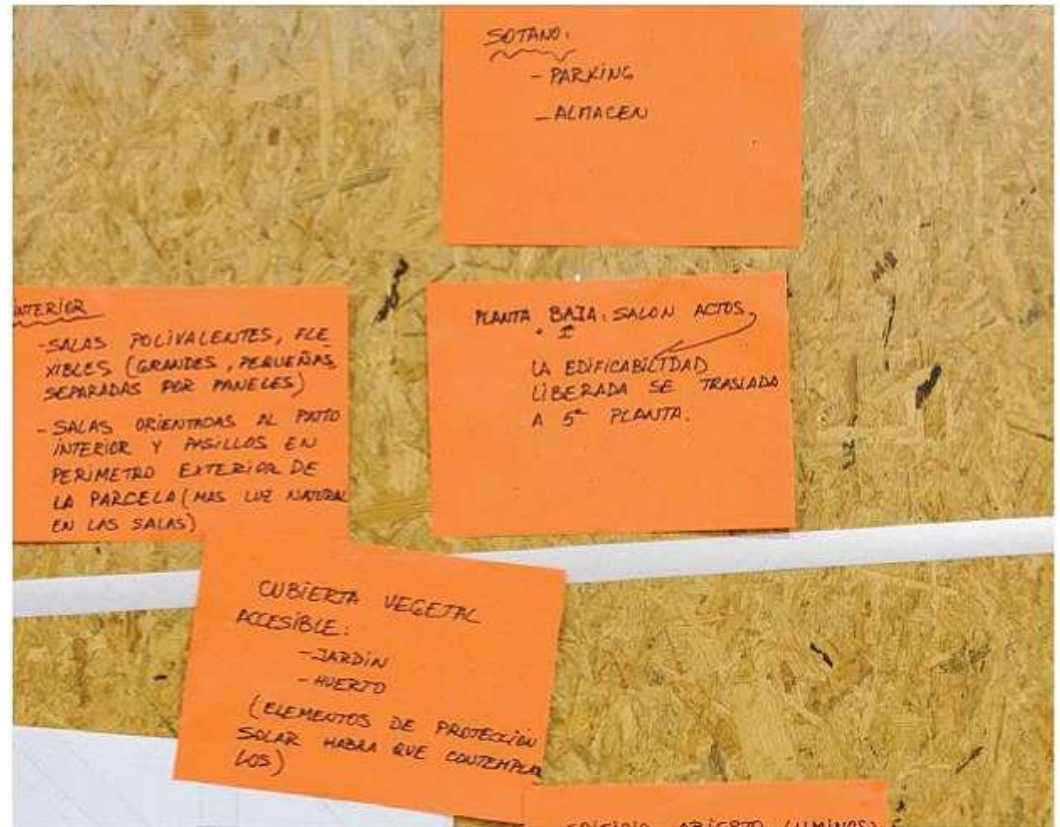 SOTANO:
- PARKING
- ALMACEN
INTERIOR
- SALAS POLIVALENTES, FLE
XIBLES (GRANDES, PEQUEÑAS
SEPARADAS POR PANELES)
- SALAS ORIENTADAS AL PATIO
INTERIOR Y PASILLOS EN
PERIMETRO EXTERIOR DE
LA PARCELA (MAS LUZ NATURAL
EN LAS SALAS)
PLANTA BAJA: SALON ACTOS,
LA EDIFICABILIDAD
LIBERADA SE TRASLADA
A 5ª PLANTA.
CUBIERTA VEGETAL
ACCESIBLE:
- JARDIN
- HUERTO
(ELEMENTOS DE PROTECCIÓN
SOLAR HABRA QUE CONTEMPLAR
LOS)
EDIFICIO ABIERTO